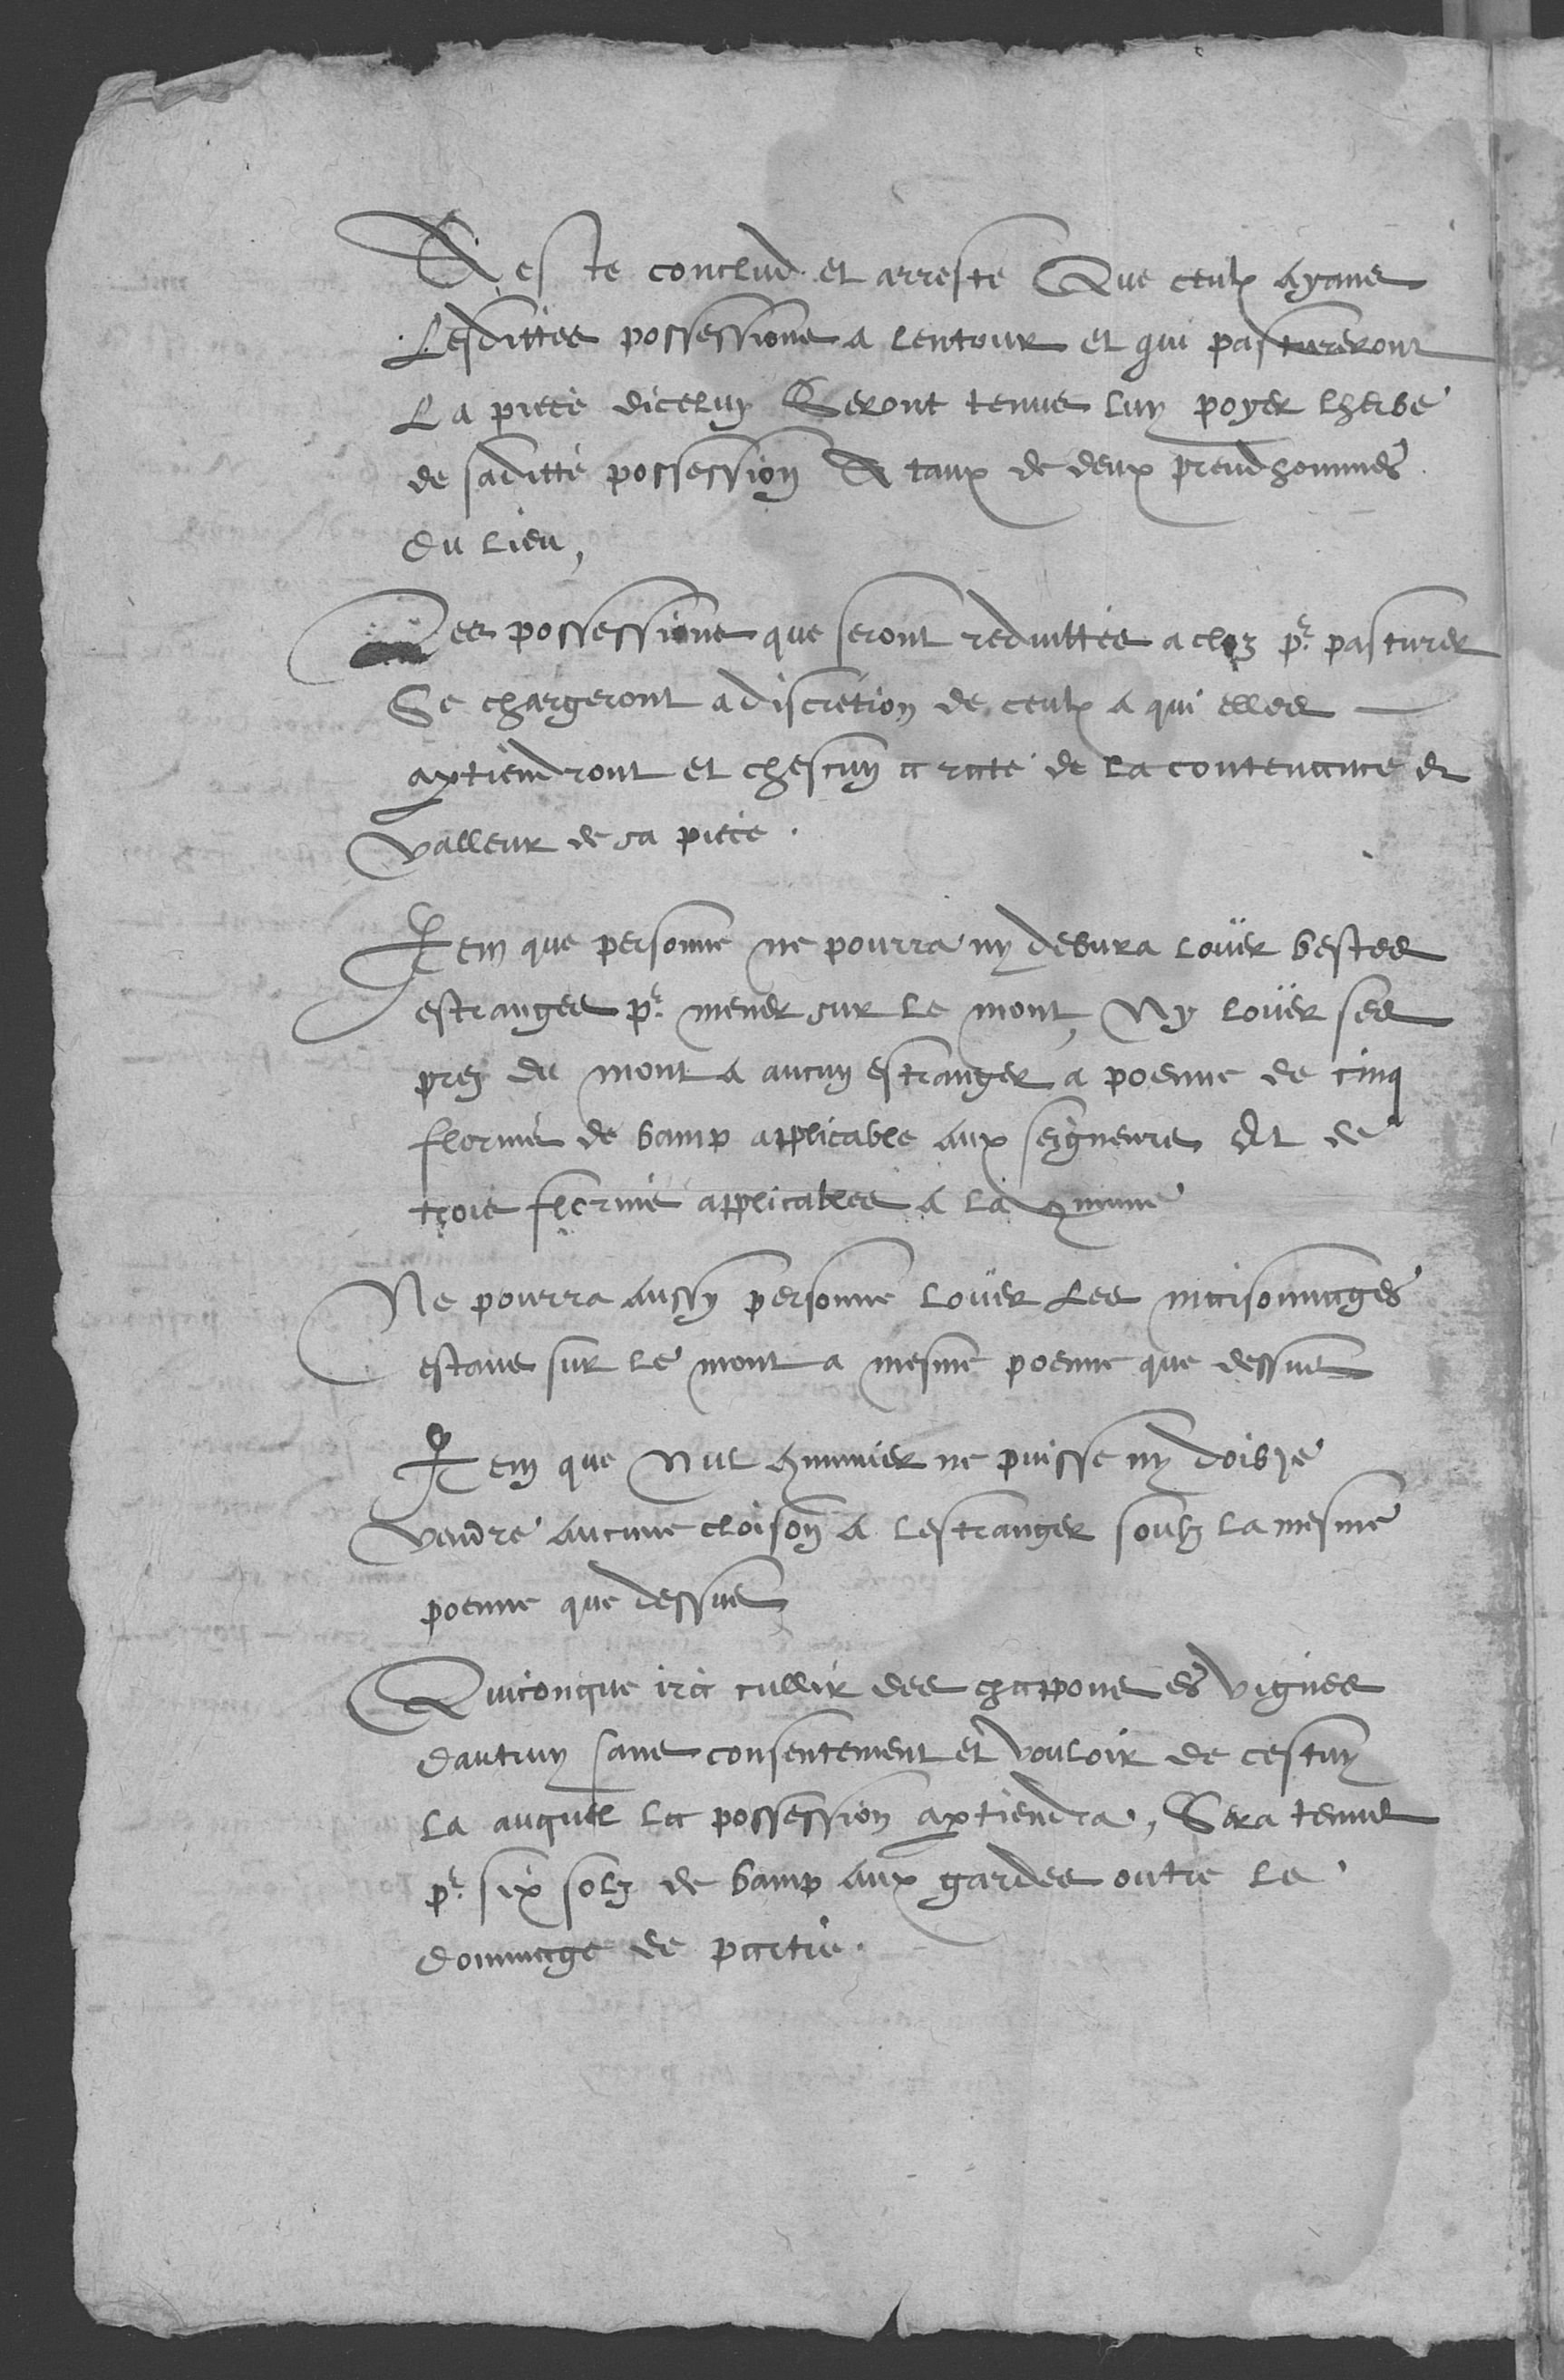 A este conclud et arreste Que ceulx ayans
Lesdittes possessions a lentour et qui pastureront
La piece diceluy Seront tenus luy poyer lherbe
de saditte possession A taux de deux preudhommes
du lieu,
Les possessions que seront reduittes a cloz pr pasturer
Se chargeront a discretion de ceulx a qui elles
aptiendront et chescun a rate de la contenance et
valleur de sa piece.
Item que personne ne pourra ny debvra louër bestes
estranges pr mener sur le mont, Ny louër ses
prez du mont a aucun estranger a poenne de cinq
florins de bamp applicable aux seigneurs Et de
trois florins applicables a la 9mune
Ne pourra aussy personne louër Les maisonnages
estans sur le mont a mesme poenne que dessus
Item que Nul 9munier ne puisse ny doibje
vendre aucune cloison a lestranger soubz la mesme
poenne que dessus
Quiconque ira cullir des chappons es vignes
dautruy sans consentement et vouloir de cestuy
la auquel la possession aptiendra, Sera tenus
pr six solz de bamp aux gardes outre le
dommage de partie.